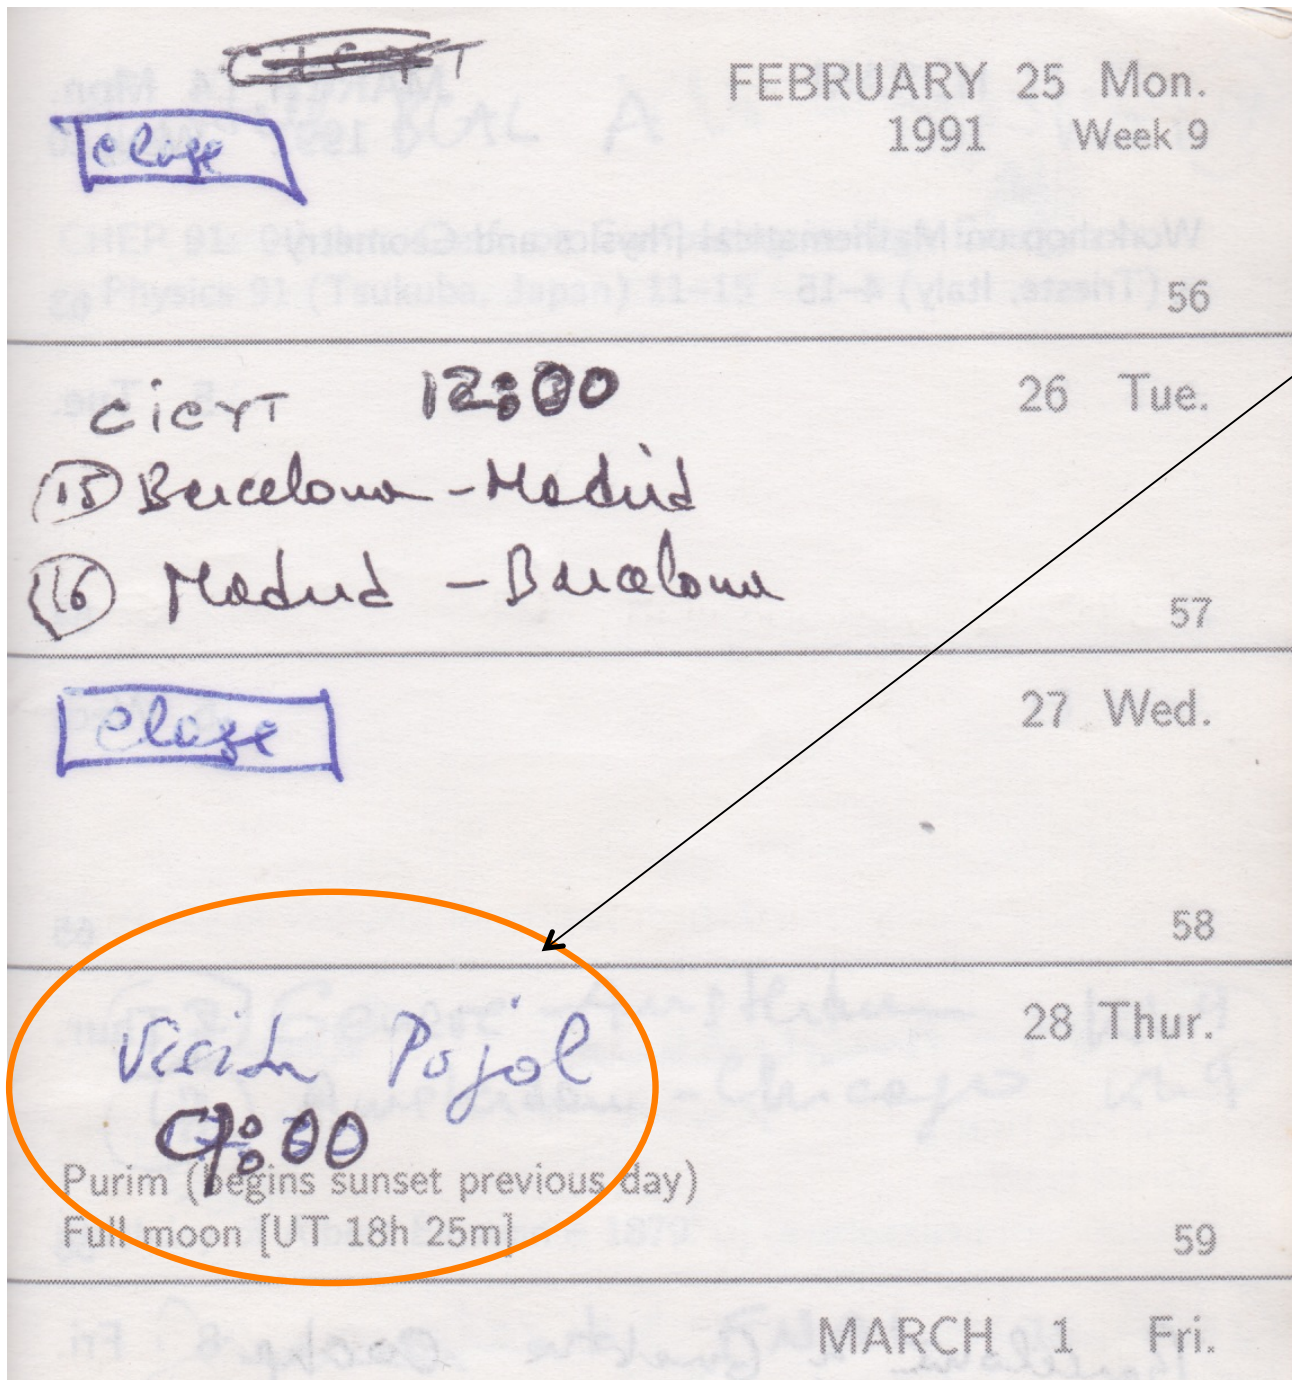 CICYT
FEBRUARY 25 Mon.
1991 Week 9
Clase
56
CICYT 12:00
26 Tue.
15 Barcelona - Madrid
16 Madrid - Barcelona
57
Clase
27 Wed.
58
28 Thur.
Visita Pujol
9:00
Purim (begins sunset previous day)
Full moon [UT 18h 25m]
59
MARCH 1 Fri.